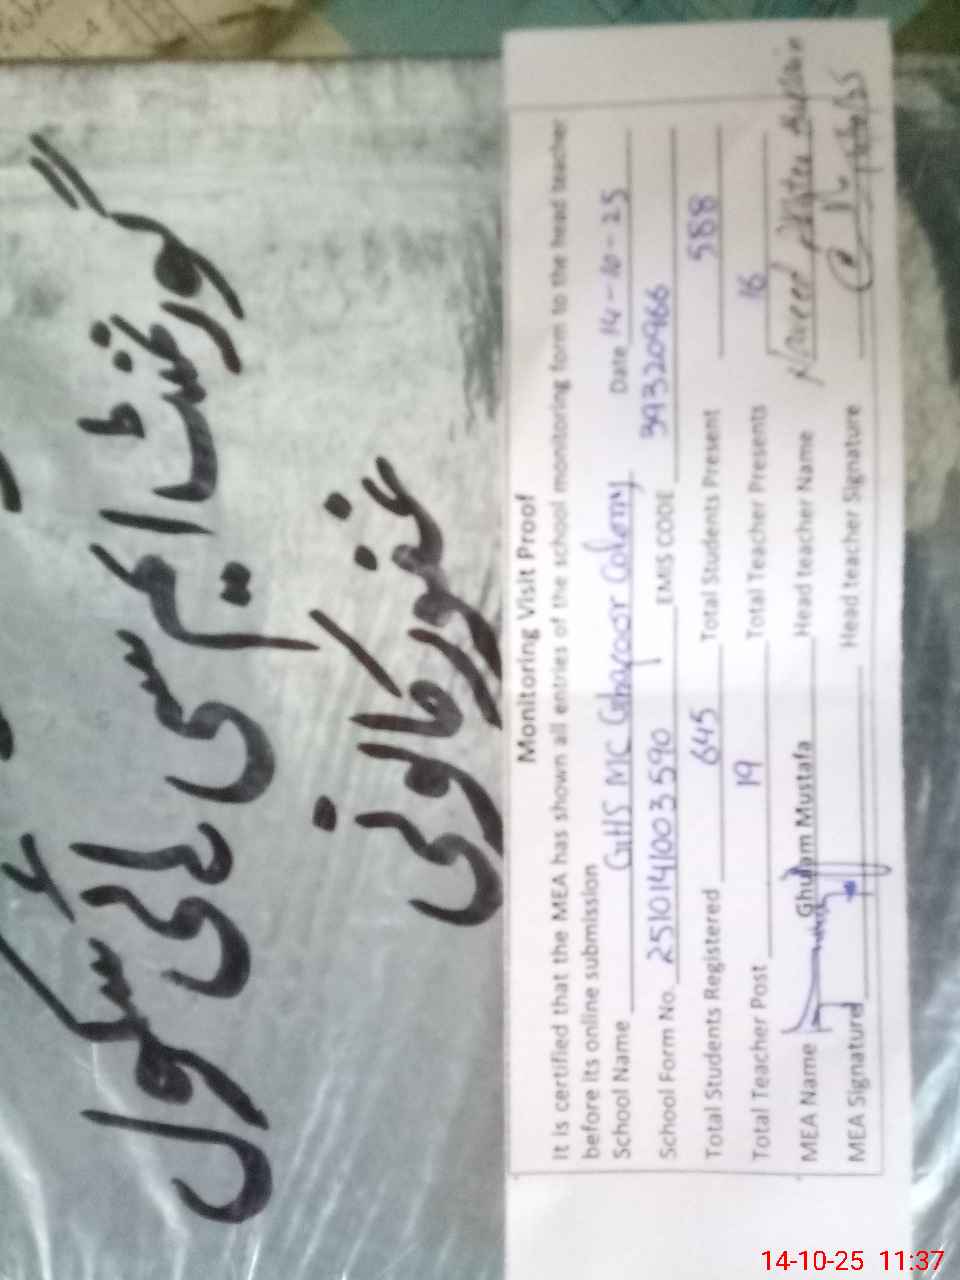 گورنمنٹ ایم سی ہائی سکول
غفور کالونی
Monitoring Visit Proof
It is certified that the MEA has shown all entries of the school monitoring form to the head teacher
before its online submission
School Name GHS MC Ghafoor Colony Date 14-10-25
School Form No. 2510141003590 EMIS CODE 39320966
Total Students Registered 645 Total Students Present 588
Total Teacher Post 19 Total Teacher Presents 16
MEA Name Ghulam Mustafa Head teacher Name Naveed
MEA Signature Head teacher Signature
14-10-25 11:37